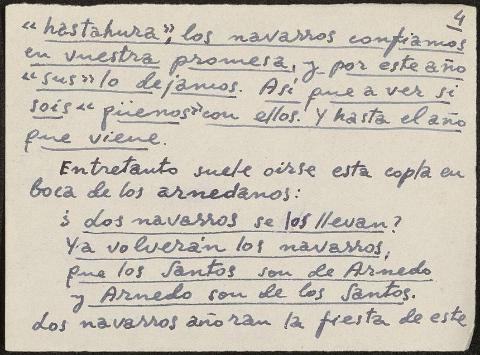 4
"hastahura", los navarros confiamos
en vuestra promesa, y por este año
"sus" lo dejamos. Así que a ver si
sois "güenos" con ellos. Y hasta el año
que viene.
Entretanto suele oirse esta copla en
boca de los arnedanos:
¿ dos navarros se los llevan?
Ya volverán los navarros,
que los Santos son de Arnedo
y Arnedo son de los Santos.
dos navarros añoran la fiesta de este